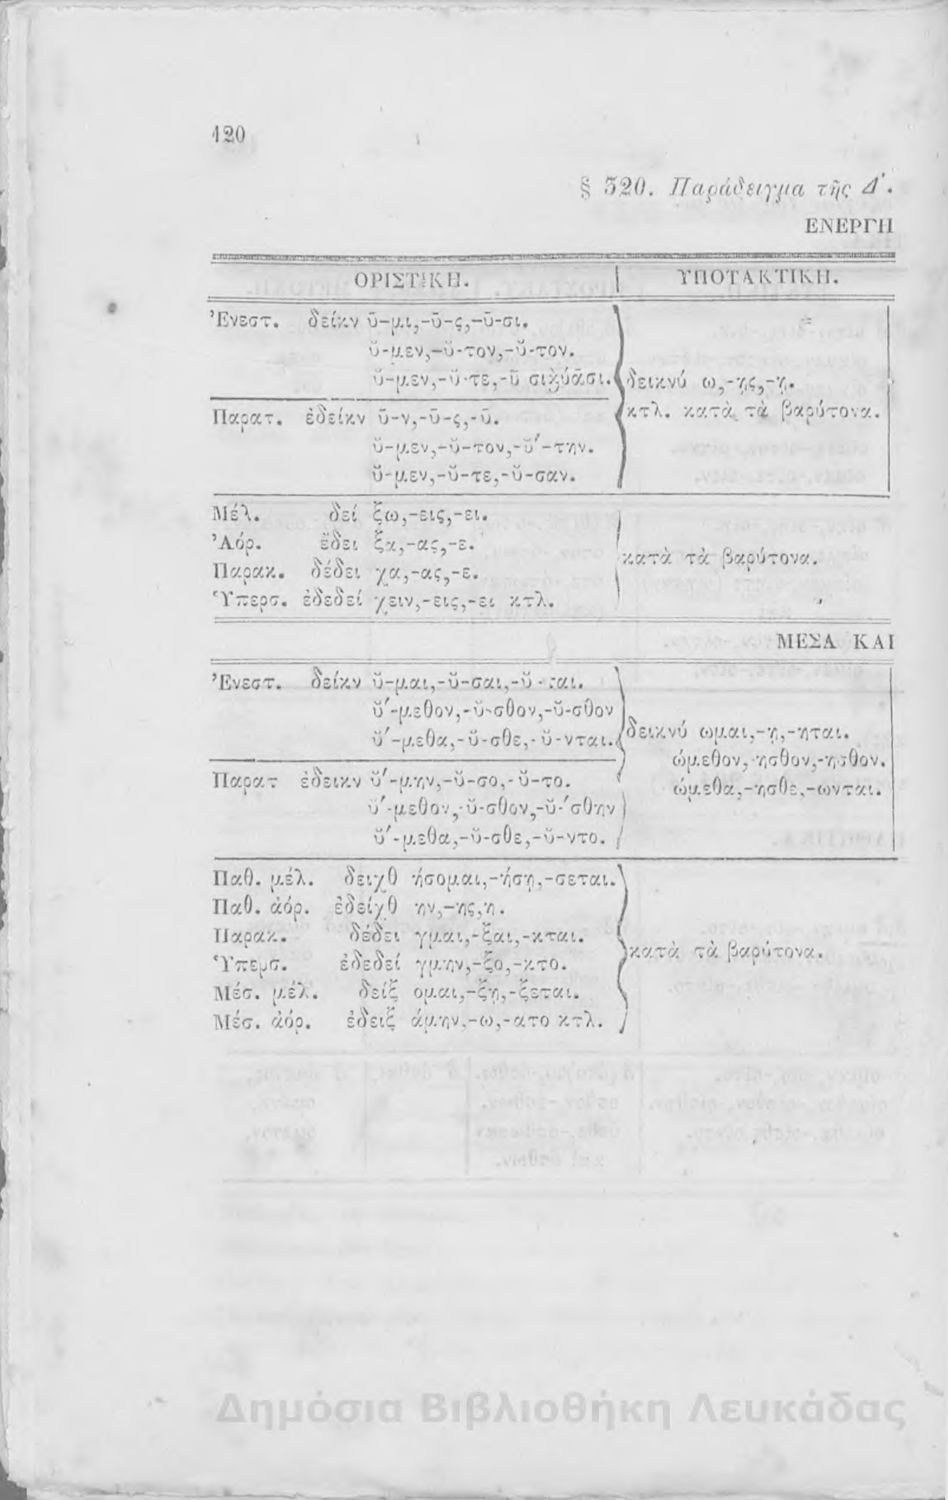 120
§ 320. Παράδειγμα τῆς Δ΄.
ΕΝΕΡΓΗ
ΟΡΙΣΤΙΚΗ. ΥΠΟΤΑΚΤΙΚΗ.
Ἐνεστ. δείκν ῡ-μι,-ῡ-ς,-ῡ-σι.
ῠ-μεν,-ῠ-τον,-ῠ-τον.
ῠ-μεν,-ῠ-τε,-ῡ σι
δεικνύ ω,-ῃς,-ῃ.
Παρατ. ἐδείκν ῡ-ν,-ῡ-ς,-ῡ.
κτλ. κατὰ τὰ βαρύτονα.
ῠ-μεν,-ῠ-τον,-ῠ΄-την.
ῠ-μεν,-ῠ-τε,-ῠ-σαν.
Μέλ. δεί ξω,-εις,-ει.
Ἀόρ. ἔδει ξα,-ας,-ε.
κατὰ τὰ βαρύτονα.
Παρακ. δέδει χα,-ας,-ε.
Ὑπερσ. ἐδεδεί χειν,-εις,-ει κτλ.
ΜΕΣΑ ΚΑΙ
Ἐνεστ. δείκν ῠ-μαι,-ῠ-σαι,-ῠ-ται.
ῠ΄-μεθον,-ῠ-σθον,-ῠ-σθον
ῠ΄-μεθα,-ῠ-σθε,-ῠ-νται.
δεικνύ ωμαι,-ῃ,-ηται.
ώμεθον,-ησθον,-ησθον.
Παρατ ἐδεικν ῠ΄-μην,-ῠ-σο,-ῠ-το.
ώμεθα,-ησθε,-ωνται.
ῠ΄-μεθον,-ῠ-σθον,-ῠ-΄σθην
ῠ΄-μεθα,-ῠ-σθε,-ῠ-ντο.
Παθ. μέλ. δειχθ ήσομαι,-ήσῃ,-σεται.
Παθ. ἀόρ. ἐδείχθ ην,-ης,η.
Παρακ. δέδει γμαι,-ξαι,-κται.
κατὰ τὰ βαρύτονα.
Ὑπερσ. ἐδεδεί γμην,-ξο,-κτο.
Μέσ. μέλ. δείξ ομαι,-ξῃ,-ξεται.
Μέσ. ἀόρ. ἐδειξ άμην,-ω,-ατο κτλ.
Δημόσια Βιβλιοθήκη Λευκάδας